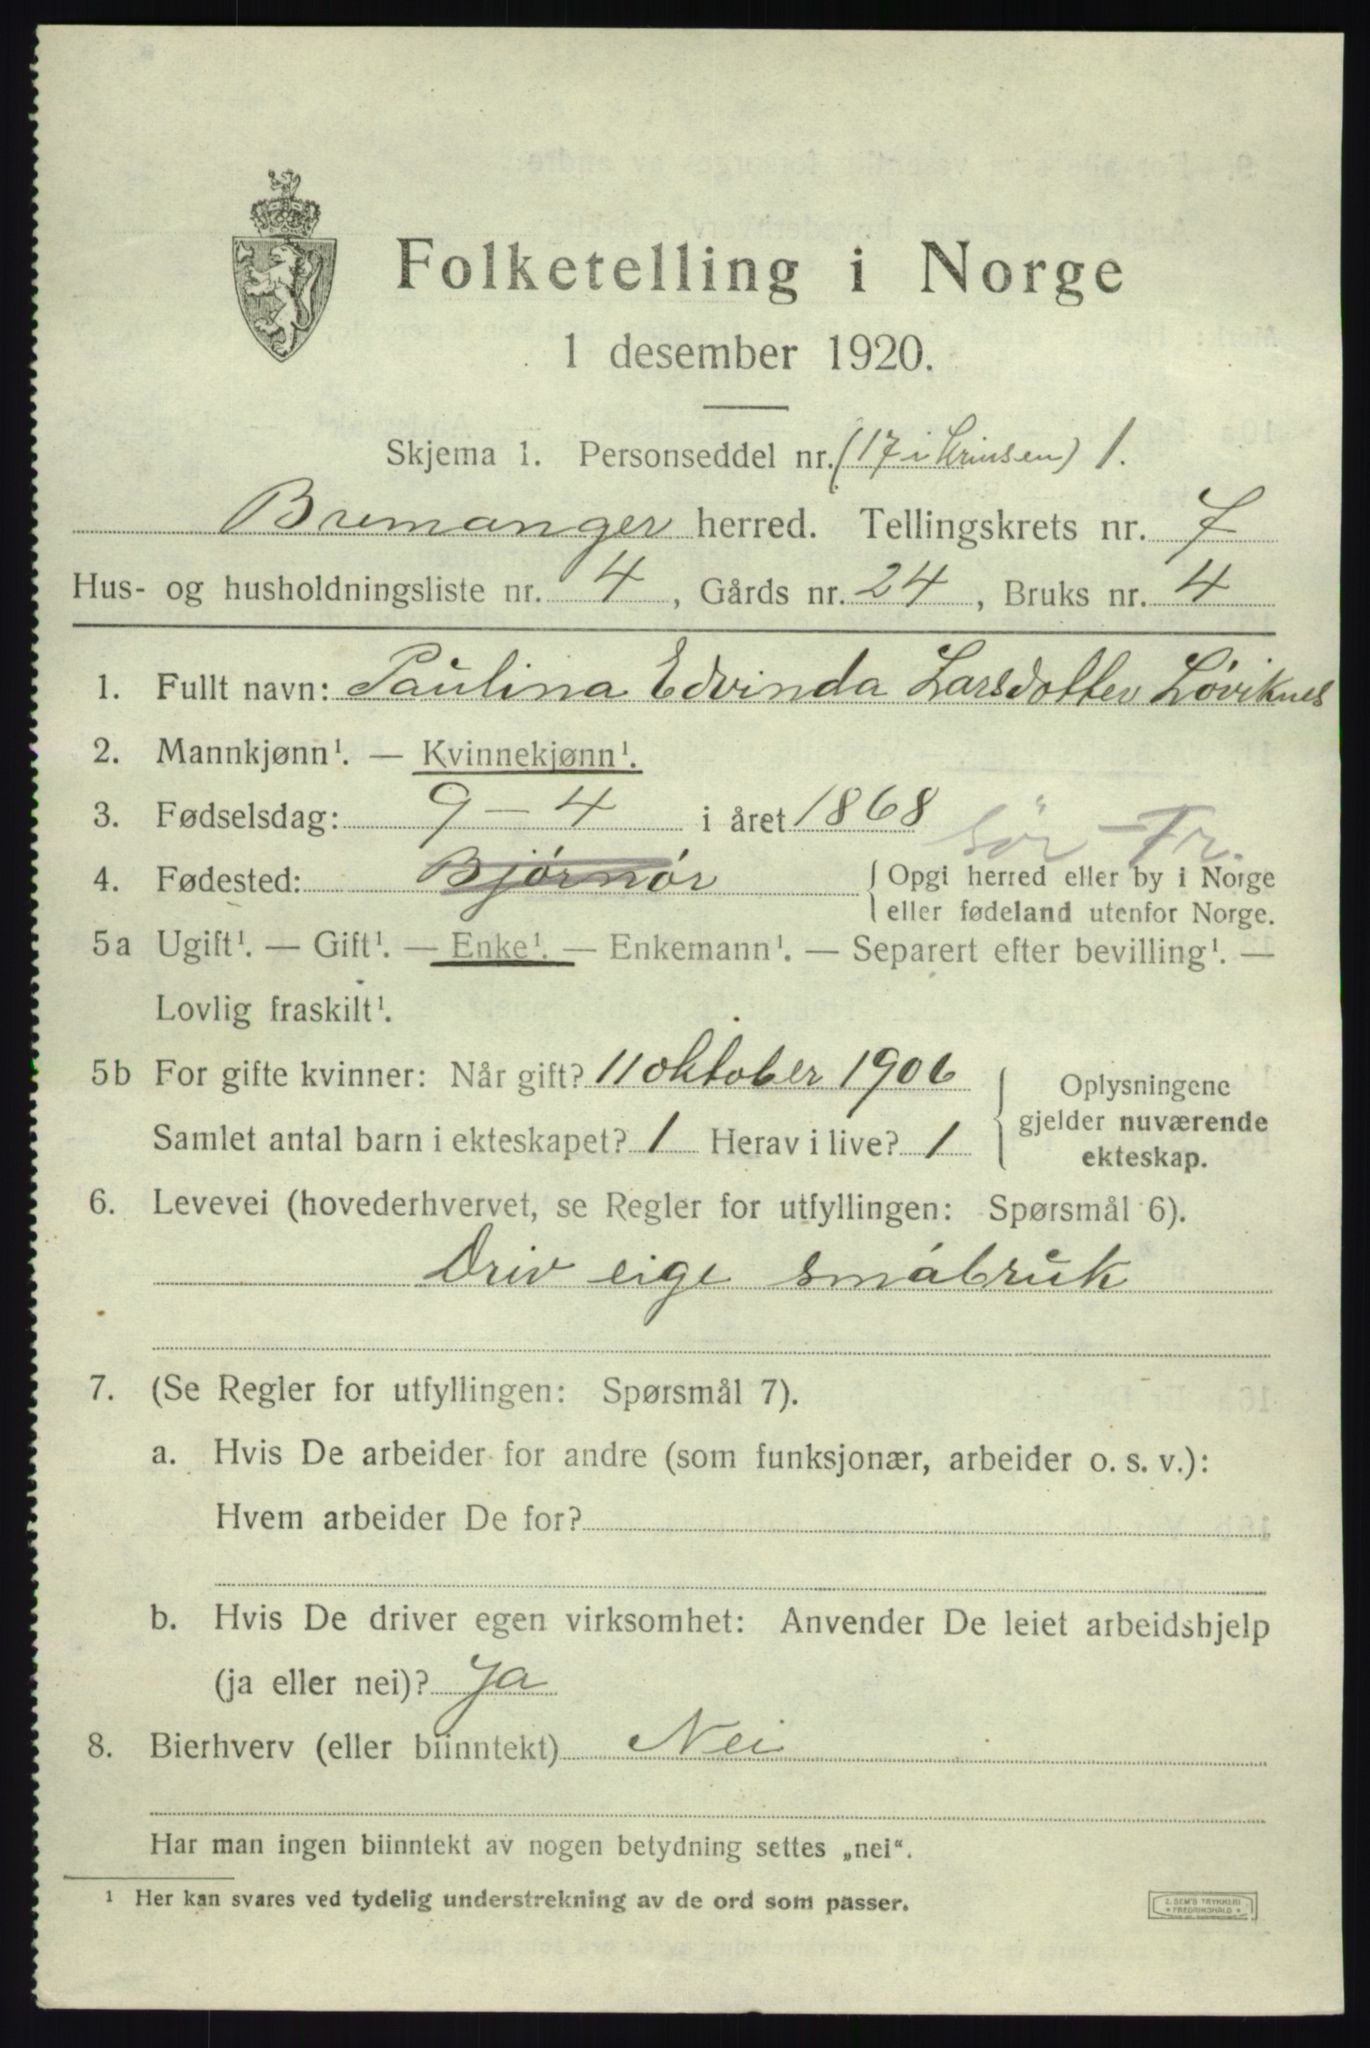 Folketelling i Norge
1 desember 1920.
Skjema 1. Personseddel nr. (17 i krinsen) 1.
Bremanger herred. Tellingskrets nr. 7
Hus- og husholdningsliste nr. 4, Gårds nr. 24, Bruks nr. 4
1. Fullt navn: Paulina Edvinda Larsdotter Løviknes
2. Mannkjønn¹. — Kvinnekjønn¹.
3. Fødselsdag: 9 – 4 i året 1868
Sør-Tr.
4. Fødested: Bjørnør { Opgi herred eller by i Norge
eller fødeland utenfor Norge.
5a Ugift¹. — Gift¹. — Enke¹. — Enkemann¹. — Separert efter bevilling¹. —
Lovlig fraskilt¹.
5b For gifte kvinner: Når gift? 11 oktober 1906
Samlet antal barn i ekteskapet? 1 Herav i live? 1
Oplysningene
gjelder nuværende
ekteskap.
6. Levevei (hovederhvervet, se Regler for utfyllingen: Spørsmål 6).
Driv eige småbruk
7. (Se Regler for utfyllingen: Spørsmål 7).
a. Hvis De arbeider for andre (som funksjonær, arbeider o. s. v.):
Hvem arbeider De for?
b. Hvis De driver egen virksomhet: Anvender De leiet arbeidshjelp
(ja eller nei)? Ja
8. Bierhverv (eller biinntekt) Nei
Har man ingen biinntekt av nogen betydning settes „nei“.
¹ Her kan svares ved tydelig understrekning av de ord som passer.
E. SEM'S TRYKKERI
* FREDRIKSHALD *